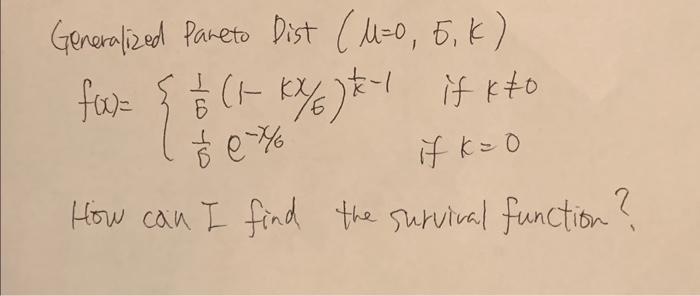 Generalized Pareto Dist (μ=0, σ, k)
f(x)= { 1/σ (1- kx/σ)^(1/k -1) if k≠0
1/σ e^(-x/σ) if k=0
How can I find the survival function?